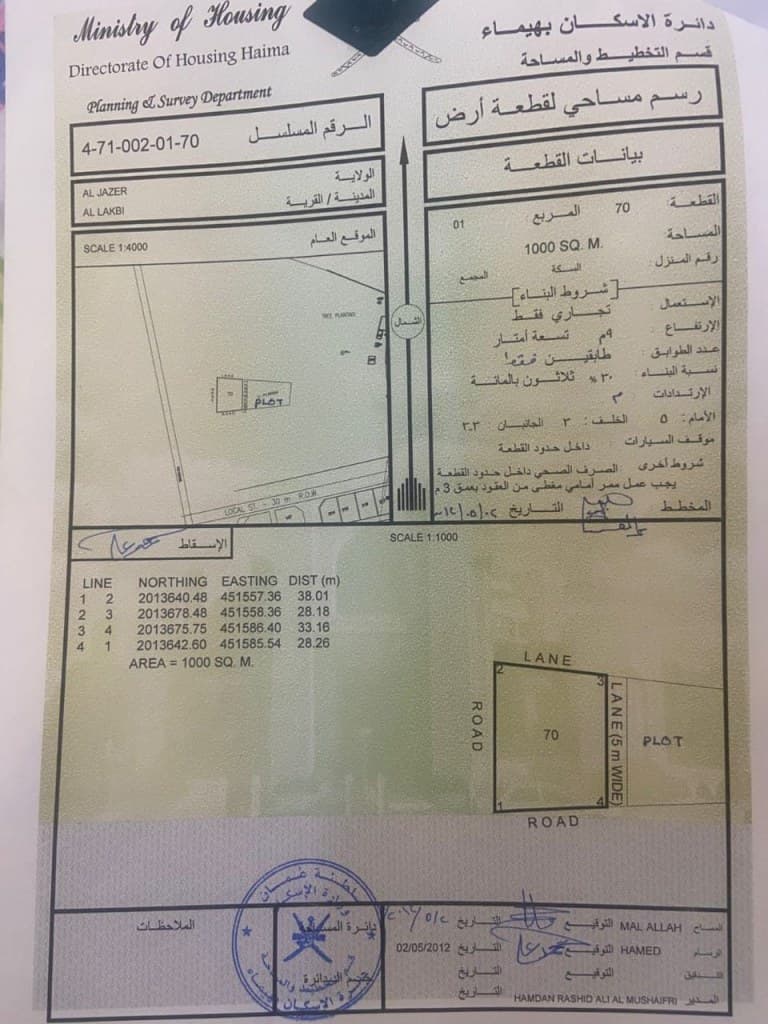 Ministry of Housing
Directorate Of Housing Haima
Planning & Survey Department
دائرة الاسكان بهيماء
قسم التخطيط والمساحة
رسم مساحي لقطعة أرض
بيانات القطعة
4-71-002-01-70 الرقم المسلسل
الولاية
AL JAZER
المدينة / القرية
AL LAKBI
SCALE 1:4000 الموقع العام
TREE PLANTING
70
PLOT
LOCAL ST. - 30 m R.O.W.
الشمال
القطعة: 70 المربع 01
المساحة: 1000 SQ. M.
رقم المنزل: السكة المجمع
شروط البناء
الإستعمال تجاري فقط
الإرتفاع: ٩م تسعة أمتار
عدد الطوابق: طابقين فقط
نسبة البناء: ٣٠% ثلاثون بالمائة
الإرتدادات م
الأمام: ٥ الخلف: ٣ الجانبان: ٣.٣
موقف السيارات: داخل حدود القطعة
شروط أخرى الصرف الصحي داخل حدود القطعة
يجب عمل ممر أمامي مغطى من العقود بعمق 3 م
المخطط التاريخ
الإسقاط
SCALE 1:1000
LINE NORTHING EASTING DIST (m)
1 2 2013640.48 451557.36 38.01
2 3 2013678.48 451558.36 28.18
3 4 2013675.75 451586.40 33.16
4 1 2013642.60 451585.54 28.26
AREA = 1000 SQ. M.
LANE
2
3
ROAD
70
LANE (5 m WIDE)
PLOT
1
4
ROAD
الملاحظات
دائرة المساحة
ختم الدائرة
سلطنة عمان
وزارة الإسكان
المساح MAL ALLAH التوقيع التاريخ
الرسام HAMED التوقيع التاريخ 02/05/2012
التدقيق التوقيع التاريخ
المدير HAMDAN RASHID ALI AL MUSHAIFRI التاريخ